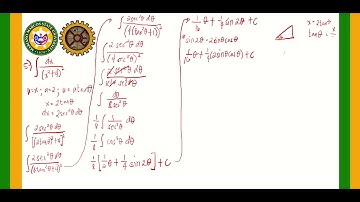 5) ∫ dx / (x²+4)²
u=x; a=2; u=a tanθ
x=2tanθ
dx=2sec²θ dθ
∫ 2sec²θ dθ / [(2tanθ)²+4]²
∫ 2sec²θ dθ / (4tan²θ+4)²
∫ 2sec²θ dθ / [4(tan²θ+1)]²
∫ 2sec²θ dθ / (4sec²θ)²
∫ dθ / 8sec²θ
1/8 ∫ 1/sec²θ dθ
1/8 ∫ cos²θ dθ
1/8 [1/2 θ + 1/4 sin2θ] + C
1/16 θ + 1/32 sin2θ + C
sin2θ = 2sinθcosθ
x=2tanθ
tanθ = x/2